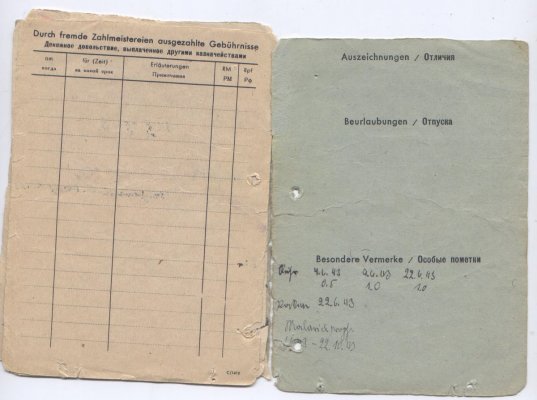 Durch fremde Zahlmeistereien ausgezahlte Gebührnisse
Денежное довольствие, выплаченное другими казначействами
am
когда
für (Zeit)
на какой срок
Erläuterungen
Примечания
RM
РМ
Rpf
Рф
Auszeichnungen / Отличия
Beurlaubungen / Отпуска
Besondere Vermerke / Особые пометки
4.6.43 9.6.43 22.6.43
0.5 1.0 1.0
22.6.43
22.10.43